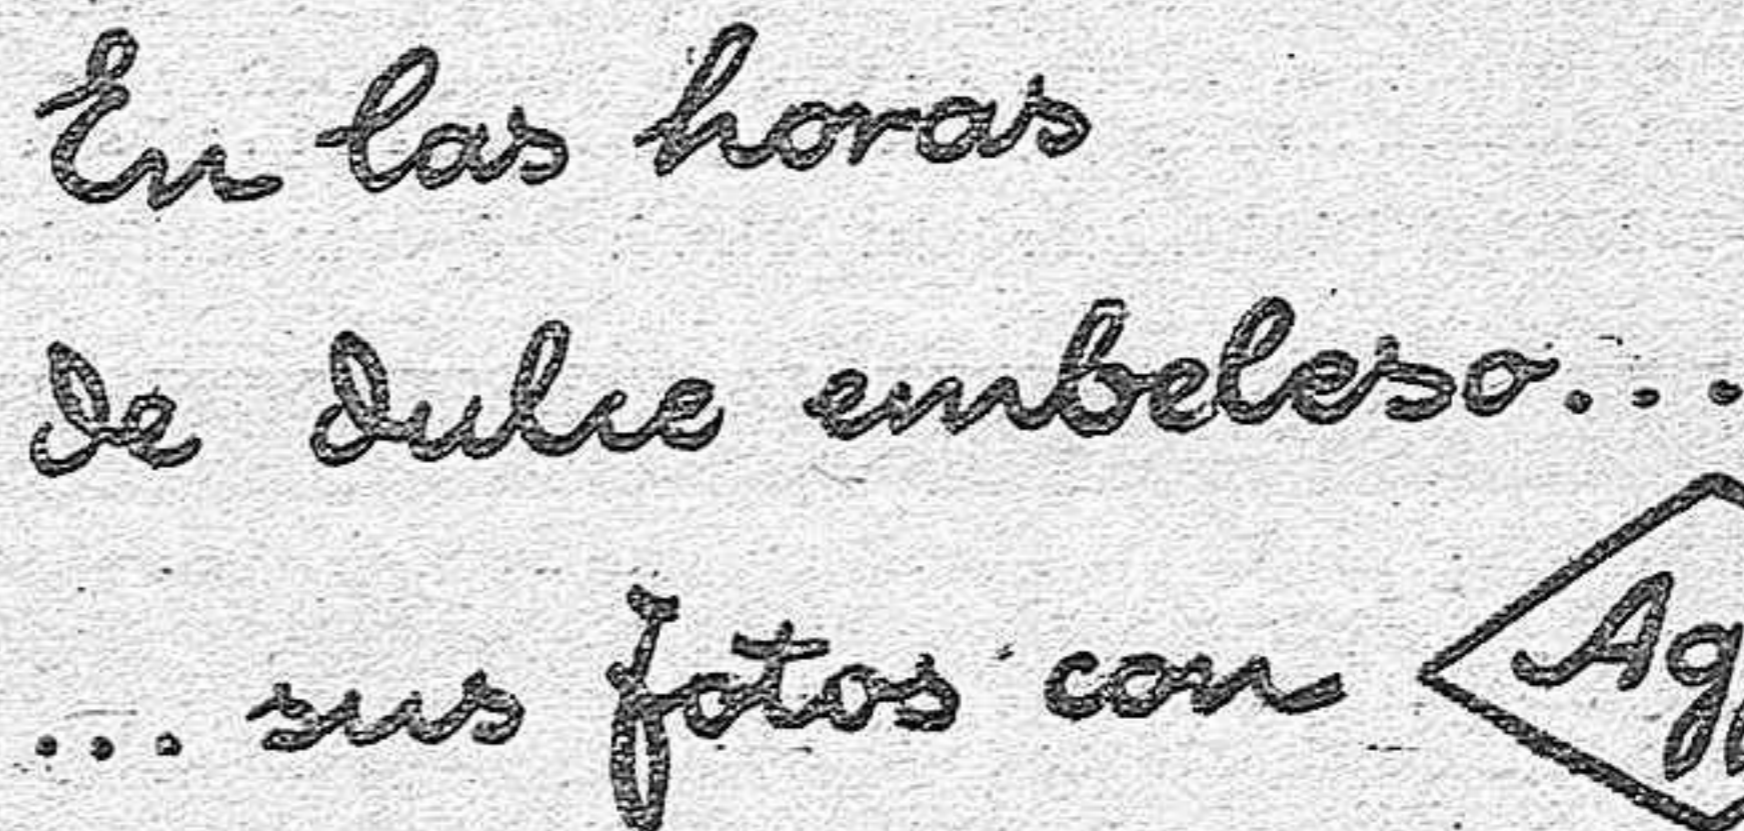 En las horas
de dulce embeleso...
... sus fotos con